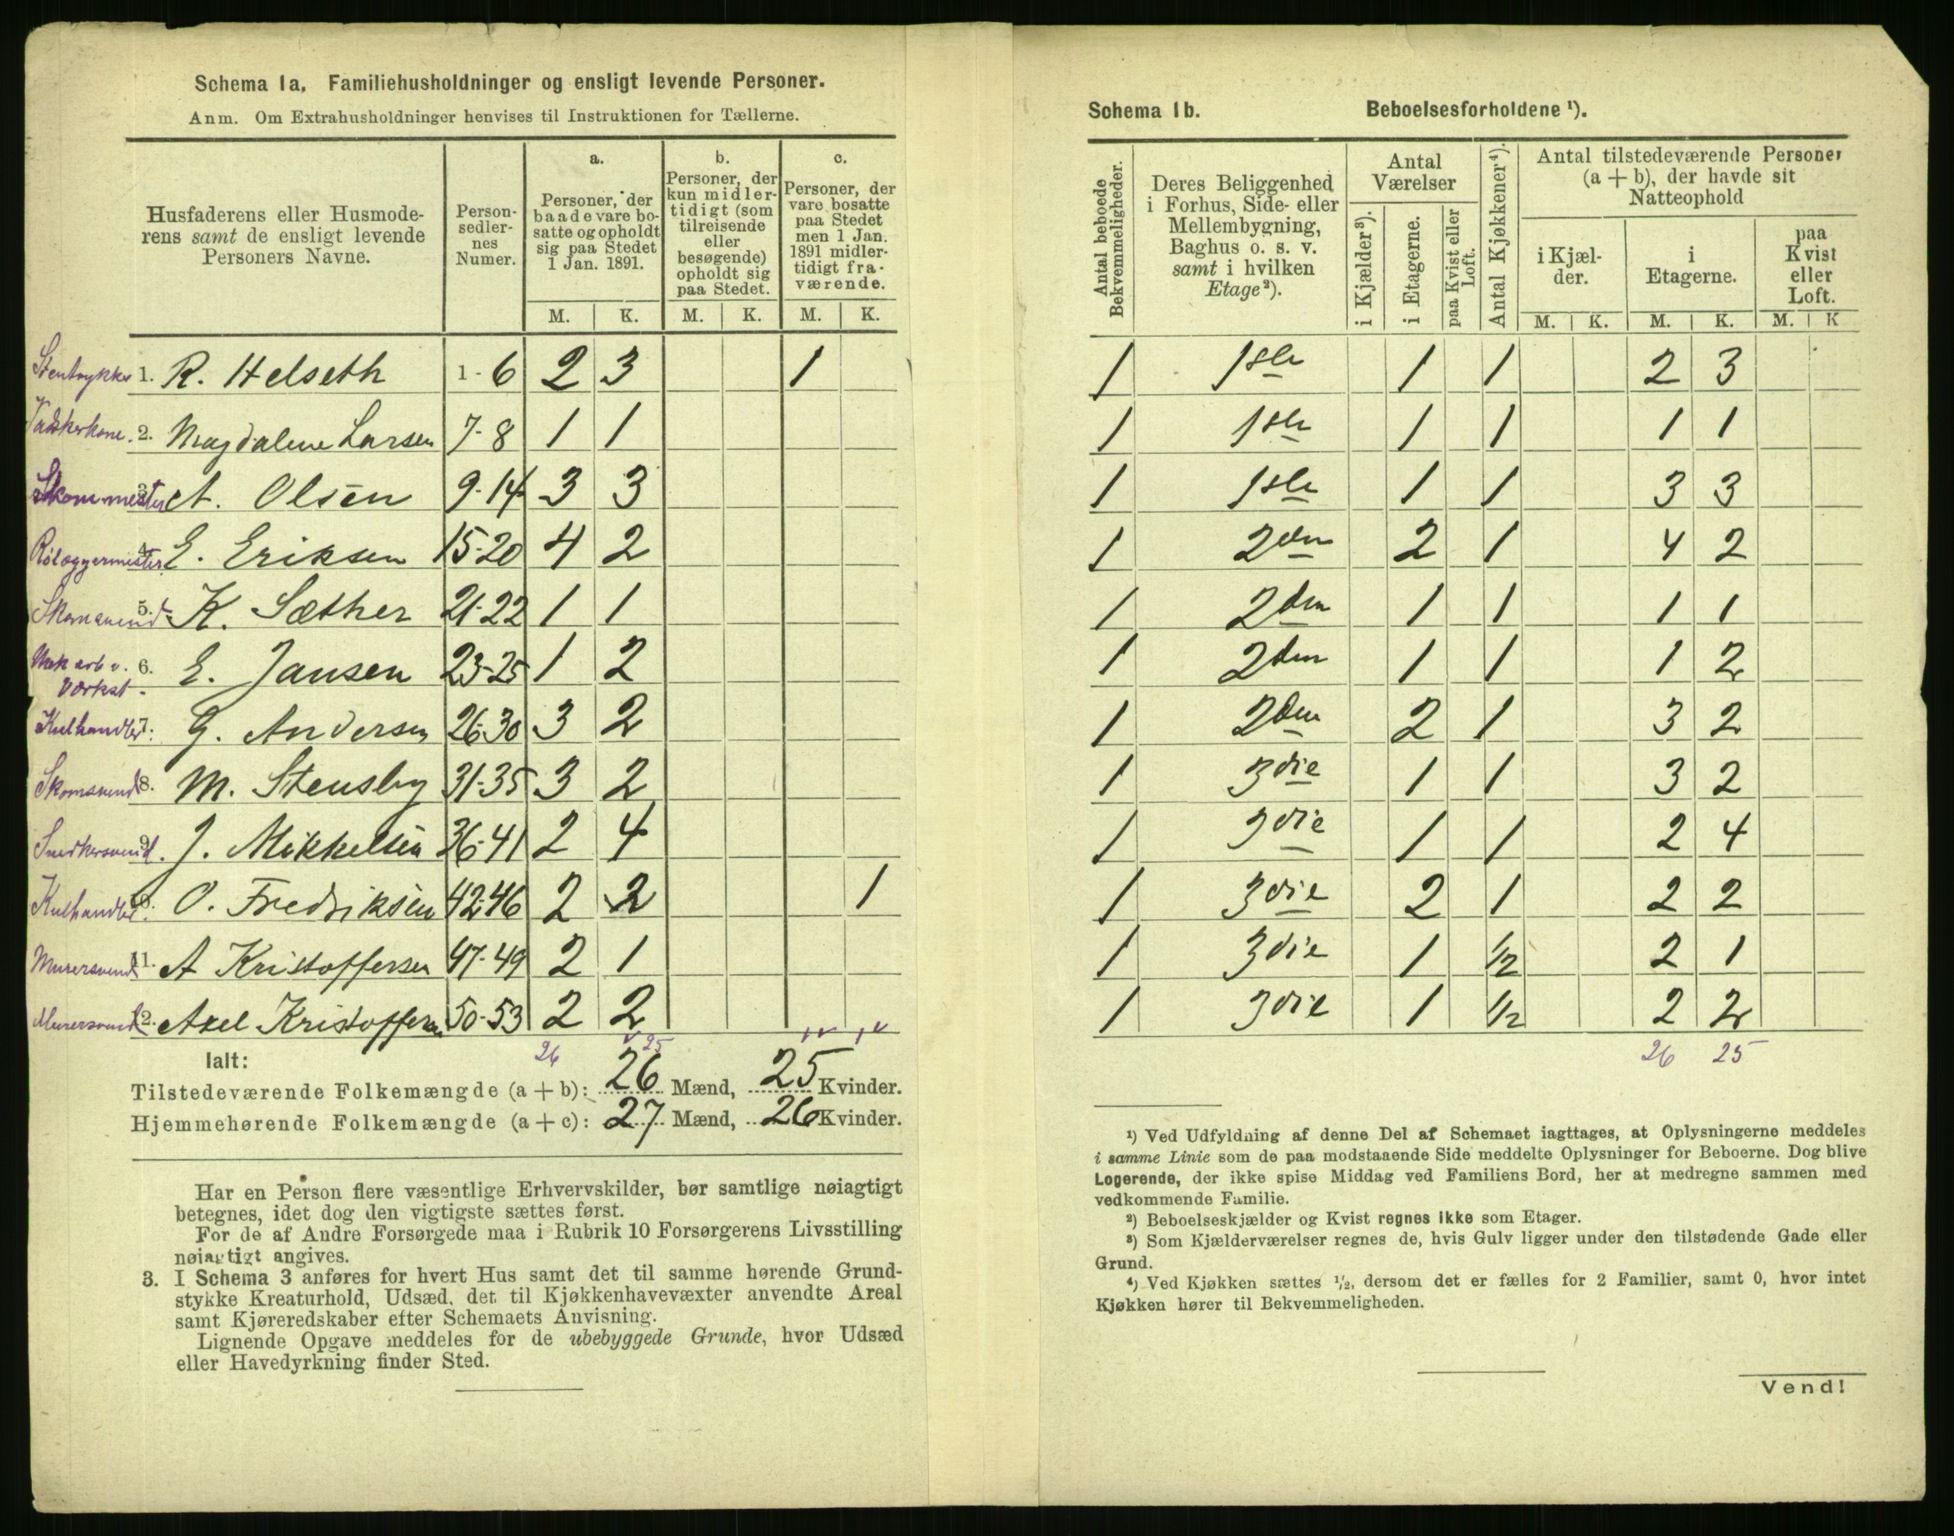 Schema 1a. Familiehusholdninger og ensligt levende Personer.
Anm. Om Extrahusholdninger henvises til Instruktionen for Tællerne.
Husfaderens eller Husmode-
rens samt de ensligt levende
Personers Navne.
Person-
sedler-
nes
Numer.
a.
Personer, der
baade vare bo-
satte og opholdt
sig paa Stedet
1 Jan. 1891.
b.
Personer, der
kun midler-
tidigt (som
tilreisende
eller
besøgende)
opholdt sig
paa Stedet.
c.
Personer, der
vare bosatte
paa Stedet
men 1 Jan.
1891 midler-
tidigt fra-
værende.
M. K. M. K. M. K.
Stentrykker 1. R. Helseth 1-6 2 3 1
Vaskerkone. 2. Magdalene Larsen 7-8 1 1
Skomagermester 3. A. Olsen 9-14 3 3
Rølæggermester 4. E. Eriksen 15-20 4 2
Skomsvend 5. K. Sæther 21-22 1 1
Mek arb v. 6. E. Jansen 23-25 1 2
Værkst.
Kulhandler 7. G. Andersen 26-30 3 2
Skomsvend 8. M. Stensby 31-35 3 2
Snedkersvend 9. J. Mikkelsen 36-41 2 4
Kulhandler 10. O. Fredriksen 42-46 2 2 1
Murersvend 11. A Kristoffersen 47-49 2 1
Murersvend 12. Axel Kristoffersen 50-53 2 2
26 25
Ialt:
Tilstedeværende Folkemængde (a + b): 26 Mænd, 25 Kvinder.
Hjemmehørende Folkemængde (a + c): 27 Mænd, 26 Kvinder.
Har en Person flere væsentlige Erhvervskilder, bør samtlige nøiagtigt
betegnes, idet dog den vigtigste sættes først.
For de af Andre Forsørgede maa i Rubrik 10 Forsørgerens Livsstilling
nøiagtigt angives.
3. I Schema 3 anføres for hvert Hus samt det til samme hørende Grund-
stykke Kreaturhold, Udsæd, det til Kjøkkenhavevæxter anvendte Areal
samt Kjøreredskaber efter Schemaets Anvisning.
Lignende Opgave meddeles for de ubebyggede Grunde, hvor Udsæd
eller Havedyrkning finder Sted.
Schema 1b. Beboelsesforholdene ¹).
Antal beboede
Bekvemmeligheder.
Deres Beliggenhed
i Forhus, Side- eller
Mellembygning,
Baghus o. s. v.
samt i hvilken
Etage²).
Antal
Værelser
i Kjælder³).
i Etagerne.
paa Kvist eller
Loft.
Antal Kjøkkener⁴).
Antal tilstedeværende Personer
(a + b), der havde sit
Natteophold
i Kjæl-
der.
i
Etagerne.
paa
Kvist
eller
Loft.
M. K. M. K. M. K
1 1ste 1 1 2 3
1 1ste 1 1 1 1
1 1ste 1 1 3 3
1 2den 2 1 4 2
1 2den 1 1 1 1
1 2den 1 1 1 2
1 2den 2 1 3 2
1 3die 1 1 3 2
1 3die 1 1 2 4
1 3die 2 1 2 2
1 3die 1 ½ 2 1
1 3die 1 ½ 2 2
26 25
¹) Ved Udfyldning af denne Del af Schemaet iagttages, at Oplysningerne meddeles
i samme Linie som de paa modstaaende Side meddelte Oplysninger for Beboerne. Dog blive
Logerende, der ikke spise Middag ved Familiens Bord, her at medregne sammen med
vedkommende Familie.
²) Beboelseskjælder og Kvist regnes ikke som Etager.
³) Som Kjælderværelser regnes de, hvis Gulv ligger under den tilstødende Gade eller
Grund.
⁴) Ved Kjøkken sættes ½, dersom det er fælles for 2 Familier, samt 0, hvor intet
Kjøkken hører til Bekvemmeligheden.
Vend!